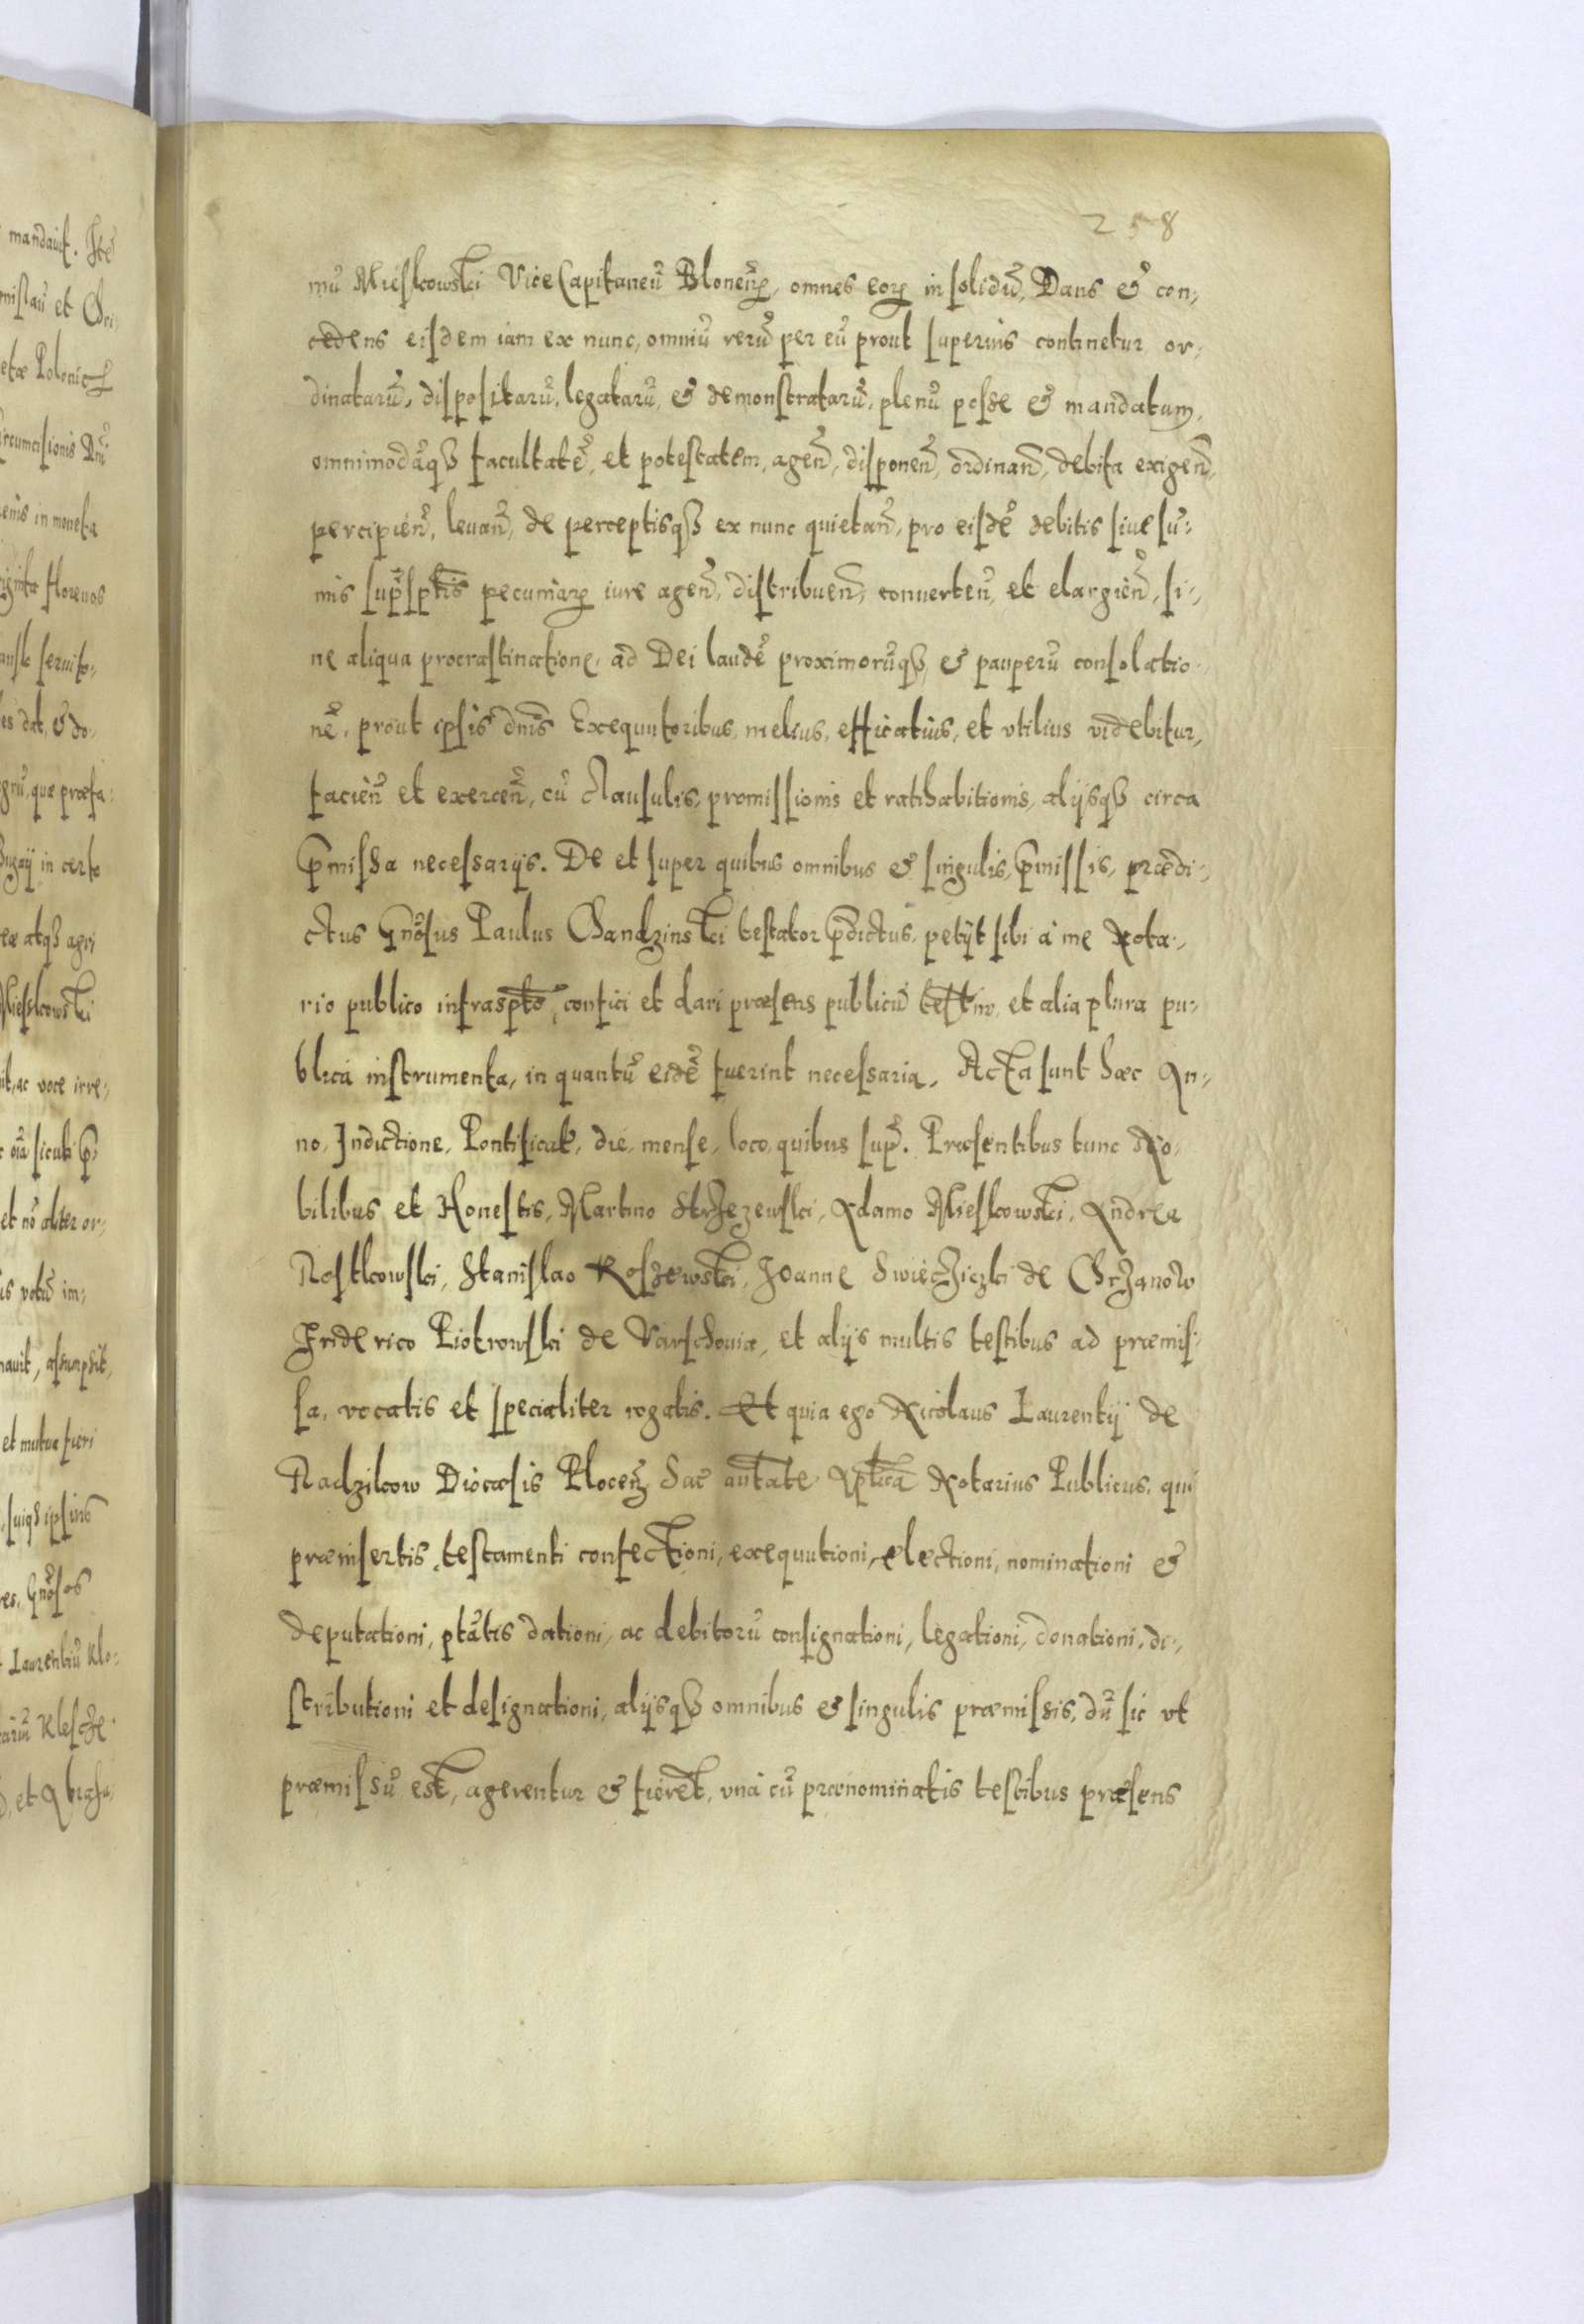 258
mū Mieskowski Vice Capitaneū Blonen̄, omnes eorꝝ in solidū, Dans & con-
cedens eisdem iam ex nunc, omniū rerū per eū prout superius continetur or-
dinatarū, dispositarū, legatarū, & demonstratarū, plenū posse & mandatum,
omnimodāqꝫ facultatē, et potestatem, agen̄, disponen̄, ordinan̄, debita exigen̄,
percipien̄, levan̄, de perceptisqꝫ ex nunc quietan̄, pro eisdē debitis siue sū-
mis supsptis pecuniarꝝ iure agen̄, distribuen̄, conuerten̄, et elargien̄, si-
ne aliqua procrastinatione, ad Dei laudē proximorūqꝫ & pauperū consolatio-
nē, prout ipsis dnis Exequutoribus, melius, efficatius, et vtilius videbitur,
facien̄ et exercen̄, cū clausulis, promissionis et ratihabitionis, alijsqꝫ circa
p̄missa necessarijs. De et super quibus omnibus & singulis, p̄missis, prædi-
ctus Gnōsus Paulus Chandzinski testator p̄dictus, petijt sibi à me Nota-
rio publico infraspto, confici et dari præsens publicū testm̄, et alia plura pu-
blica instrumenta, in quantū eidē fuerint necessaria. Acta sunt hæc An-
no, Indictione, Pontificat, die, mense, loco, quibus sup̄. Præsentibus tunc No-
bilibus et Honestis, Martino Strzezewski, Adamo Mieskowski, Andrea
Rostkowski, Stanislao Roszewski, Joanne Swięcziczki de Chrzanow
Friderico Piotrowski de Varschouia, et alijs multis testibus ad præmis-
sa, vocatis et specialiter rogatis. Et quia ego Nicolaus Laurentij de
Radzikow Diocæsis Plocen̄ Sac̄ autate Aptica Notarius Publicus, qui
præinsertis, testamenti confectioni, exequutioni, electioni, nominationi &
deputationi, ptātis dationi, ac debitorū consignationi, legationi, donationi, di-
stributioni et designationi, alijsqꝫ omnibus & singulis præmissis, dū sic vt
præmissū est, agerentur & fieret, vnà cū prænominatis testibus præsens